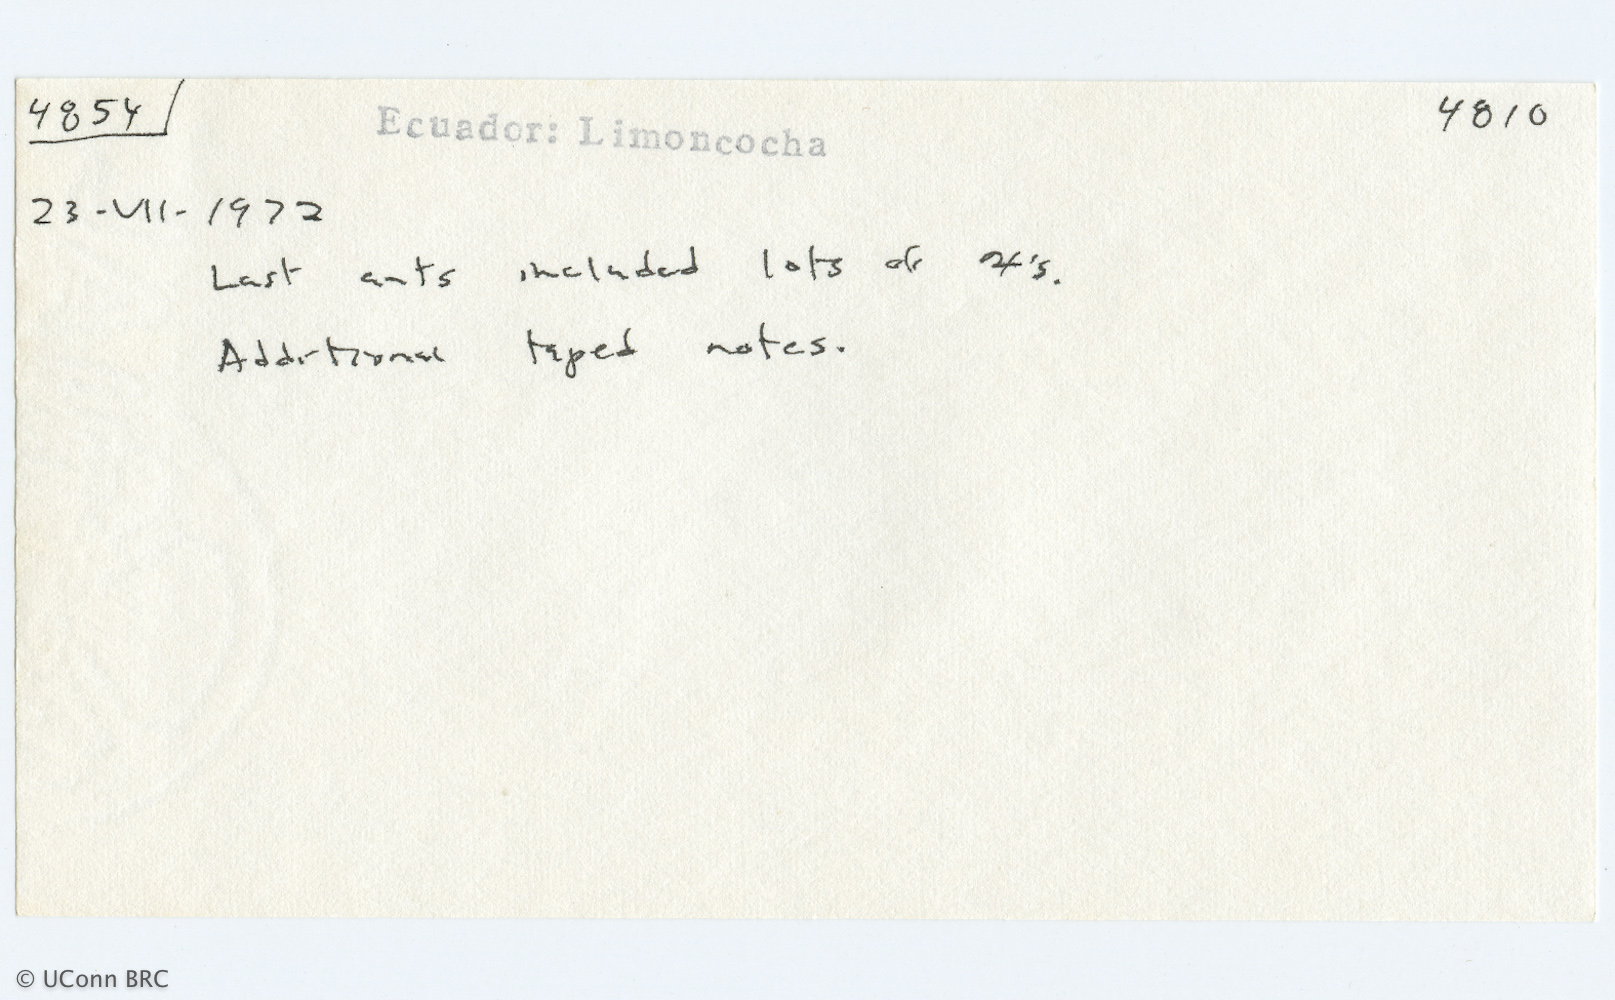 4854
Ecuador: Limoncocha
4810
23-VII-1972
Last ants included lots of 4's.
Additional taped notes.
© UConn BRC